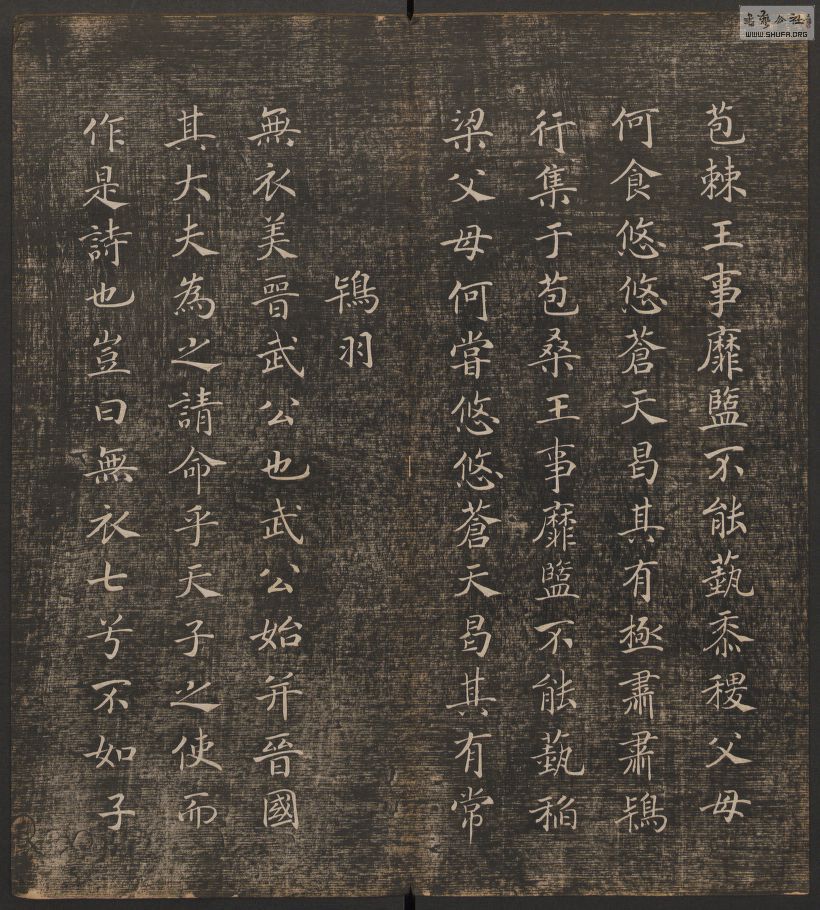 苞棘王事靡盬不能蓺黍稷父母
何食悠悠蒼天曷其有極肅肅鴇
行集于苞桑王事靡盬不能蓺稻
梁父母何嘗悠悠蒼天曷其有常
鴇羽
無衣美晉武公也武公始并晉國
其大夫為之請命乎天子之使而
作是詩也豈曰無衣七兮不如子
書藝公社
WWW.SHUFA.ORG